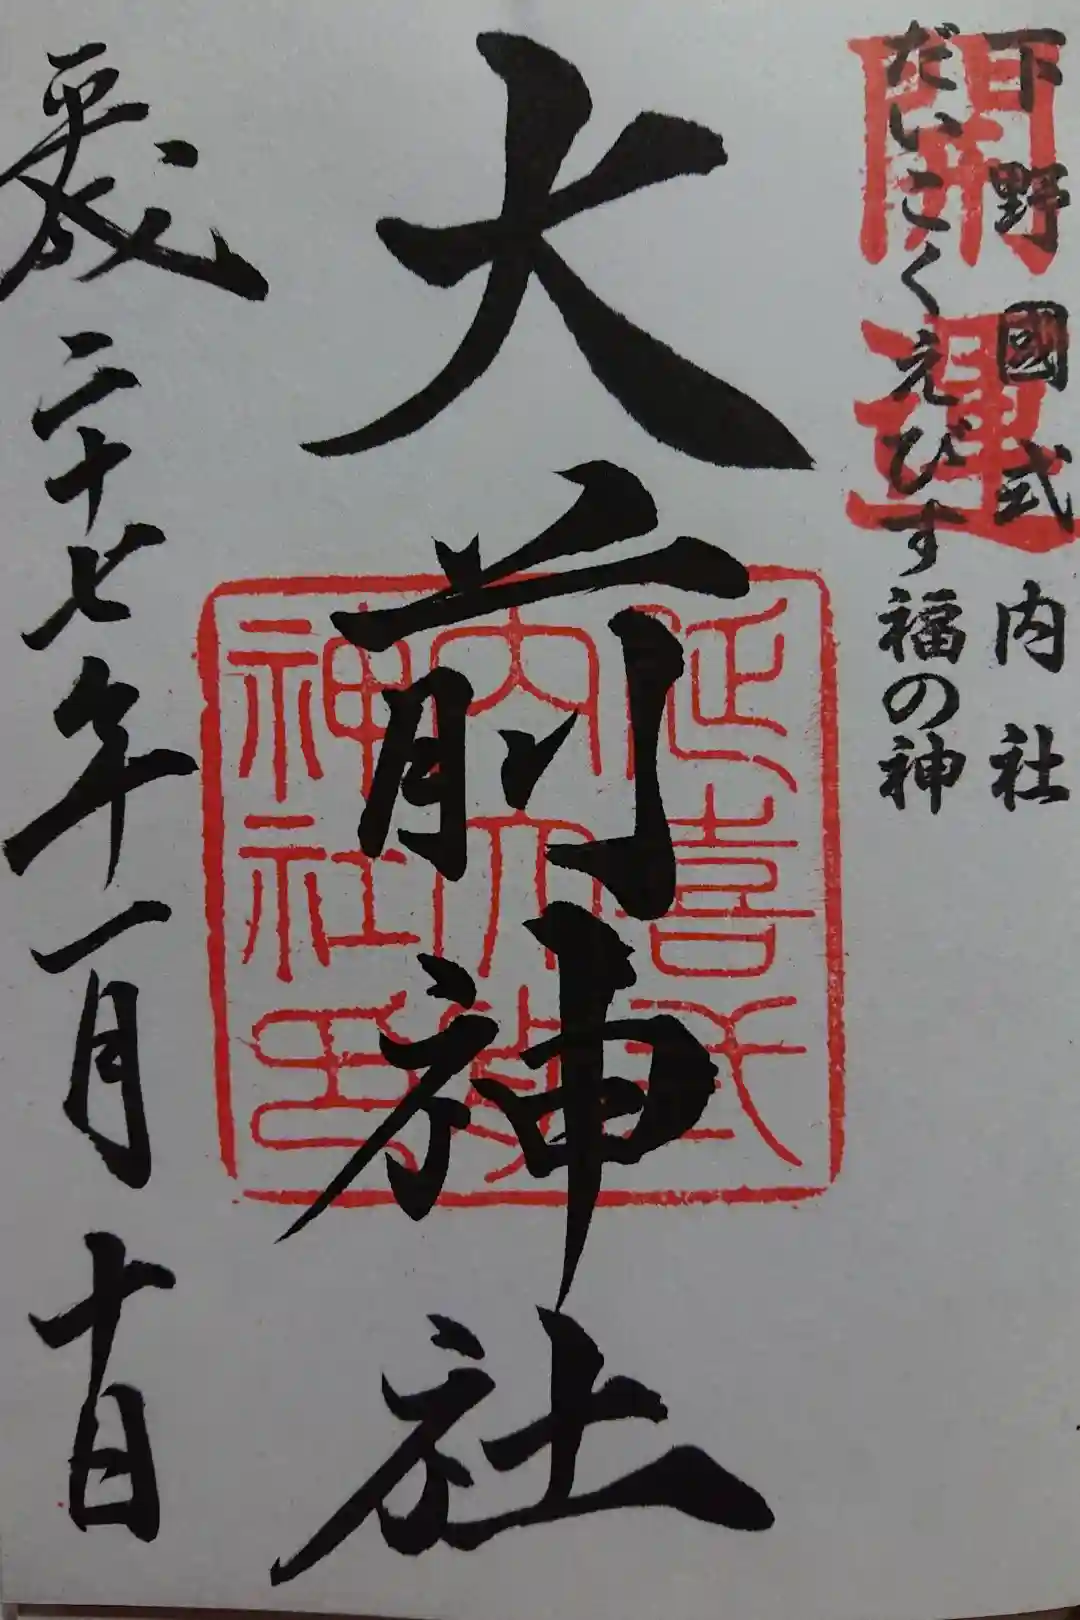 下野國式内社
だいこくえびす福の神
開運
大前神社
延喜式
内大前
神社印
平成二十七年一月十日